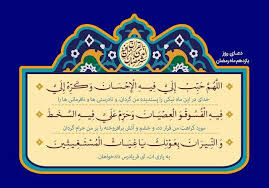 دعای روز
یازدهم ماه رمضان
اللَّهُمَّ حَبِّبْ إِلَيَّ فِيهِ الْإِحْسَانَ وَ كَرِّهْ إِلَيَّ
خدای در این ماه نیکی را پسندیده من گردان، و نادرستی ها و نافرمانی ها را
فِيهِ الْفُسُوقَ وَ الْعِصْيَانَ وَ حَرِّمْ عَلَيَّ فِيهِ السَّخَطَ
مورد کراهت من قرار ده، و خشم و آتش برافروخته را بر من حرام گردان
وَ النِّيرَانَ بِعَوْنِكَ يَا غِيَاثَ الْمُسْتَغِيثِينَ
به یاری ات، ای فریادرس دادخواهان.